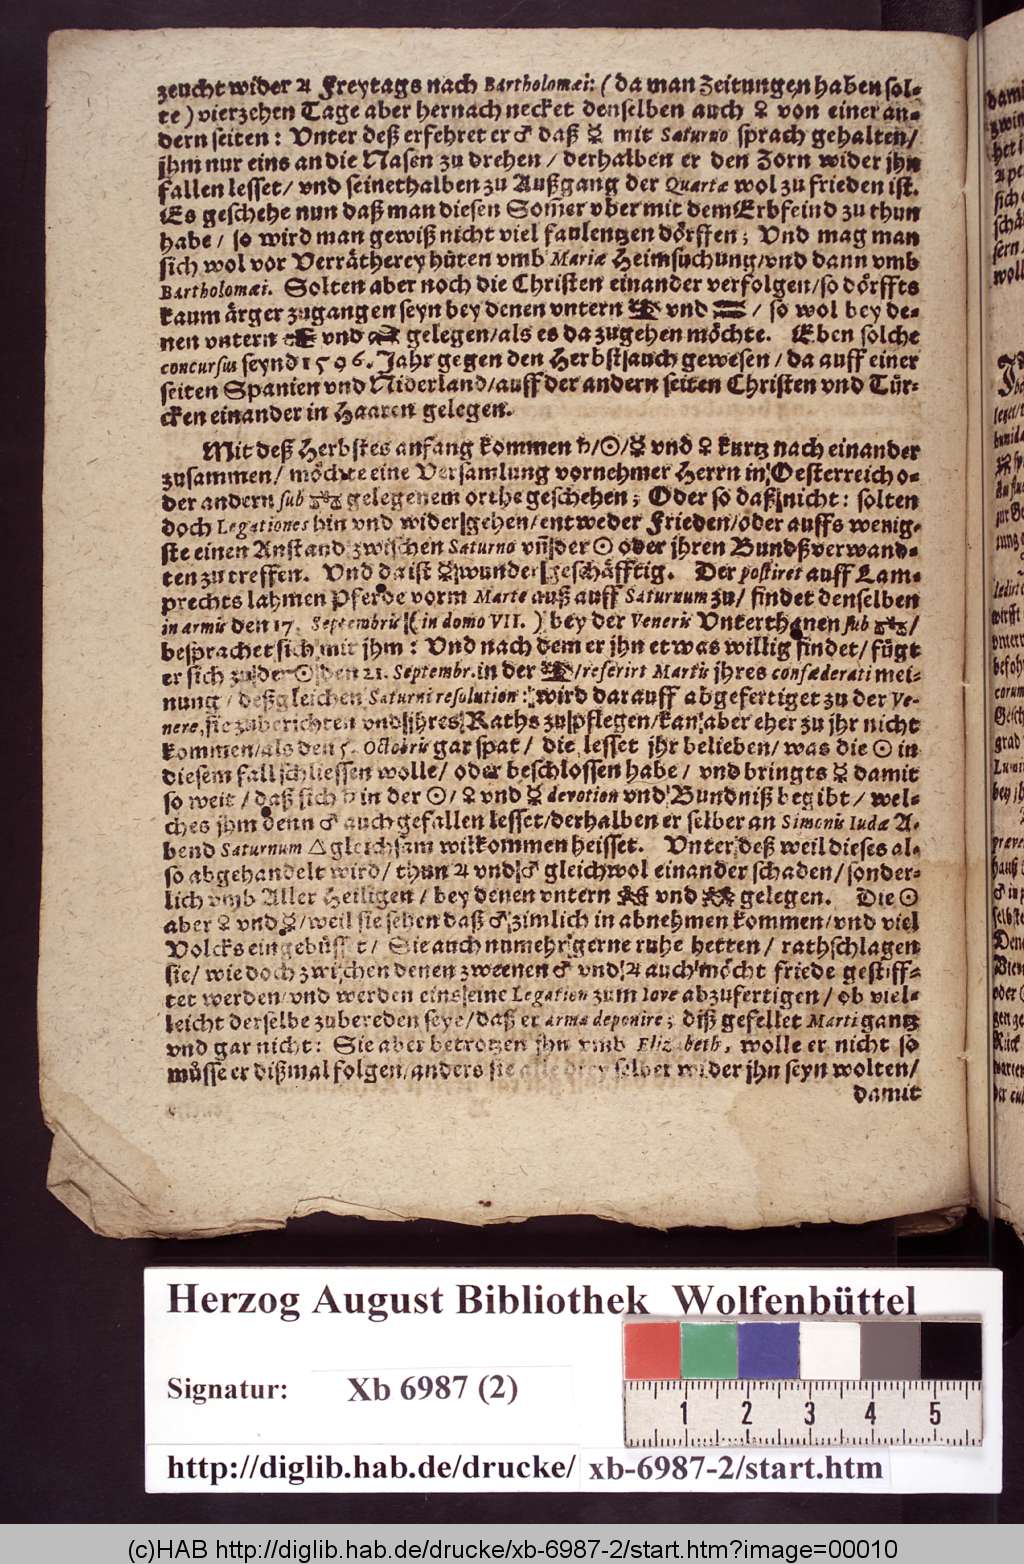 zeucht wider ♃ Freytags nach Bartholomæi: ( da man Zeitungen haben sol-
te ) vierzehen Tage aber hernach necket denselben auch ♀ von einer an-
dern seiten : Vnter deß erfehret er ♂ daß ☿ mit Saturno sprach gehalten/
jhm nur eins an die Nasen zu drehen / derhalben er den Zorn wider jhn
fallen lesset/ vnd seinethalben zu Außgang der Quartæ wol zu frieden ist.
Es geschehe nun daß man diesen Som̃er vber mit dem Erbfeind zu thun
habe / so wird man gewiß nicht viel faulentzen dörffen ; Vnd mag man
sich wol vor Verrätherey hüten vmb Mariæ Heimsuchung/vnd dann vmb
Bartholomæi. Solten aber noch die Christen einander verfolgen/so dörffts
kaum ärger zugangen seyn bey denen vntern vnd / so wol bey de-
nen vntern vnd gelegen/als es da zugehen möchte. Eben solche
concursus seynd 1596. Jahr gegen den Herbst auch gewesen / da auff einer
seiten Spanien vnd Niderland/auff der andern seiten Christen vnd Tür-
cken einander in Haaren gelegen.
Mit deß Herbstes anfang kommen ♄/☉/☿ vnd ♀ kurtz nach einander
zusammen/ möchte eine Versamlung vornehmer Herrn in Oesterreich o-
der andern sub gelegenem orthe geschehen ; Oder so daß nicht : solten
doch Legationes hin vnd wider gehen/entweder Frieden/oder auffs wenig-
ste einen Anstand zwischen Saturno vñ der ☉ oder jhren Bundßverwand-
ten zu treffen. Vnd da ist ☿ wunder geschäfftig. Der postiret auff Lam-
prechts lahmen Pferde vorm Marte auß auff Saturnum zu/ findet denselben
in armis den 17. Septembris ( in domo VII. ) bey der Veneris Vnterthanen sub /
besprachet sich mit jhm : Vnd nach dem er jhn etwas willig findet/ fügt
er sich zu der ☉ den 21. Septembr. in der /referirt Martis jhres confœderati mei-
nung / deßgleichen Saturni resolution : wird darauff abgefertiget zu der Ve-
nere, sie zuberichten vnd jhres Raths zu pflegen/kan aber eher zu jhr nicht
kommen/als den 5. Octobris gar spat / die lesset jhr belieben/ was die ☉ in
diesem fall schliessen wolle/ oder beschlossen habe / vnd bringts ☿ damit
so weit / daß sich ♄ in der ☉/ ♀ vnd ☿ devotion vnd Bundniß begibt / wel-
ches jhm denn ♂ auch gefallen lesset/derhalben er selber an Simonis Iudæ A-
bend Saturnum △ gleichsam wilkommen heisset. Vnter deß weil dieses al-
so abgehandelt wird/ thun ♃ vnd ♂ gleichwol einander schaden/ sonder-
lich vmb Aller Heiligen / bey denen vntern vnd gelegen. Die ☉
aber ♀ vnd ☿/ weil sie sehen daß ♂ zimlich in abnehmen kommen/vnd viel
Volcks eingebüsset / Sie auch numehr gerne ruhe hetten / rathschlagen
sie/ wie doch zwischen denen zweenen ♂ vnd ♃ auch möcht friede gestiff-
tet werden/ vnd werden eins eine Legation zum Iove abzufertigen / ob viel-
leicht derselbe zubereden seye/ daß er arma deponire ; diß gefellet Marti gantz
vnd gar nicht : Sie aber betrotzen jhn vmb Elizabeth, wolle er nicht so
müsse er dißmal folgen/anders sie alle drey selber wider jhn seyn wolten/
damit
Herzog August Bibliothek Wolfenbüttel
Signatur: Xb 6987 (2)
1 2 3 4 5
http://diglib.hab.de/drucke/ xb-6987-2/start.htm
(c)HAB http://diglib.hab.de/drucke/xb-6987-2/start.htm?image=00010